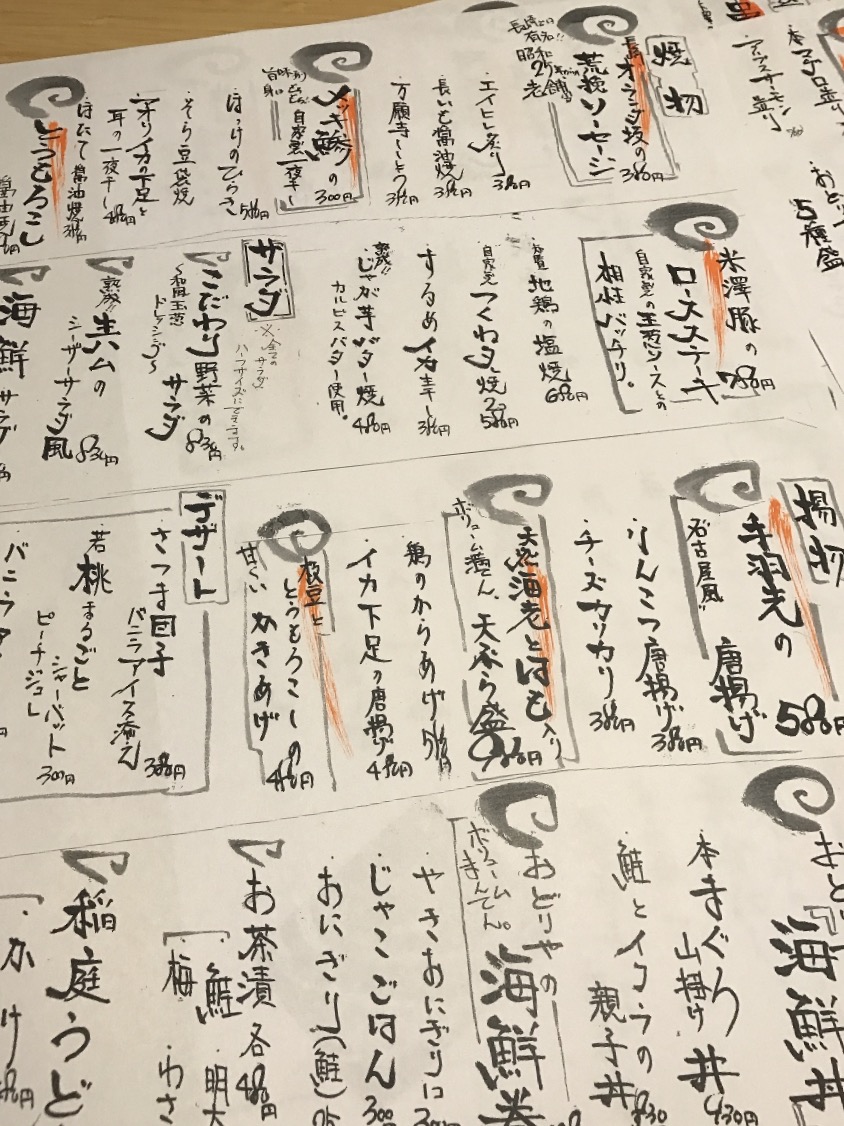 本マグロ造り
アトランティックサーモン造り
5種盛
焼物
長崎オランダ坂の
荒挽ソーセージ
380円
長崎では
有名!!
昭和
25年から
老舗
エイヒレ炙り
380円
長いも醤油焼
380円
万願寺ししとう
380円
メッキ鰺の
自家製一夜干し
300円
ほっけのひらき
580円
そら豆袋焼
アオリイカの下足と
耳の一夜干し
480円
ほたて醤油焼
とうもろこし
醤油焼
米澤豚の
ロースステーキ
780円
自家製の玉葱ソースとの
相性バッチリ。
地鶏の塩焼
680円
自家製
つくねタレ焼2コ
580円
するめイカ丸干し
380円
熟成!!
じゃが芋バター焼
480円
カルピスバター使用。
サラダ
※全ての
サラダ
ハーフサイズにできます。
こだわり野菜の
サラダ
830円
～和風玉葱
ドレッシング～
熟成!!
生ハムの
シーザーサラダ風
830円
海鮮サラダ
揚物
手羽先の
唐揚げ
580円
名古屋風!!
なんこつ唐揚げ
380円
チーズカリカリ
380円
天然海老とはも入り
天ぷら盛
980円
ボリューム満てん、
鶏のからあげ
580円
イカ下足の唐揚げ
480円
枝豆と
とうもろこしの
かきあげ
480円
甘〜い
デザート
さつま団子
バニラアイス添え
380円
若桃まるごと
シャーベット
ピーチジュレ
300円
バニラア
海鮮丼
本まぐろ
山掛け丼
930円
鮭とイクラの
親子丼
830円
おどりやの
海鮮巻
ボリューム
まんてん。
やきおにぎり1コ
じゃこごはん
300円
おにぎり(鮭)
お茶漬各
480円
鮭 明太
梅 わさ
稲庭うど
かけ